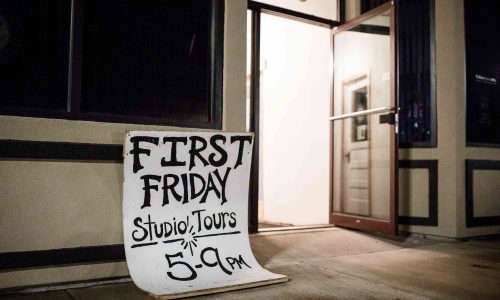 FIRST
FRIDAY
Studio Tours
5-9PM